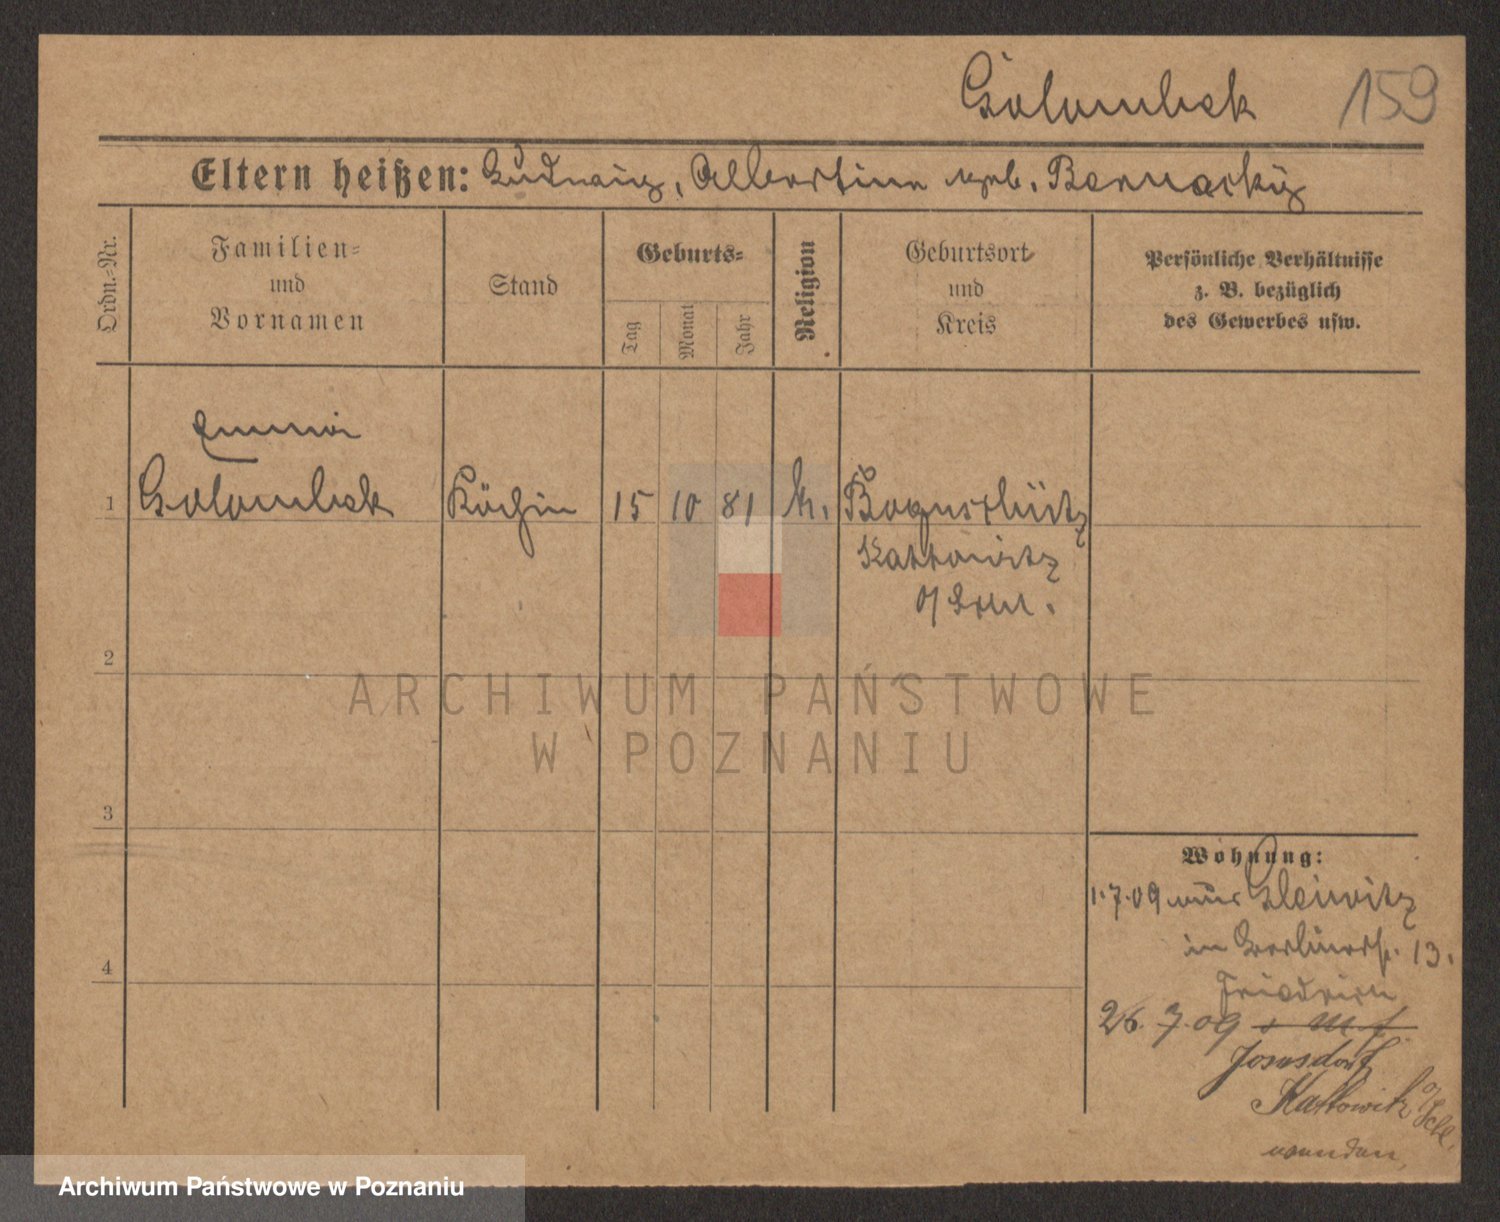 Golombek 159
Eltern heißen: Ludwig, Albertine geb. Bernacky
Ordn.-Nr.
Familien-
und
Vornamen
Stand
Geburts-
Tag
Monat
Jahr
Religion
Geburtsort
und
Kreis
Persönliche Verhältnisse
z. B. bezüglich
des Gewerbes usw.
Emma
1 Golombek Köchin 15 10 81 k. Boguschütz
Kattowitz
o/Schl.
2
3
4
Wohnung:
1.7.09 aus Gleiwitz
in 13.
Friedrich
26. 7. 09
Josefsdorf
Kattowitz o/Schl.
ARCHIWUM PAŃSTWOWE
W POZNANIU
Archiwum Państwowe w Poznaniu